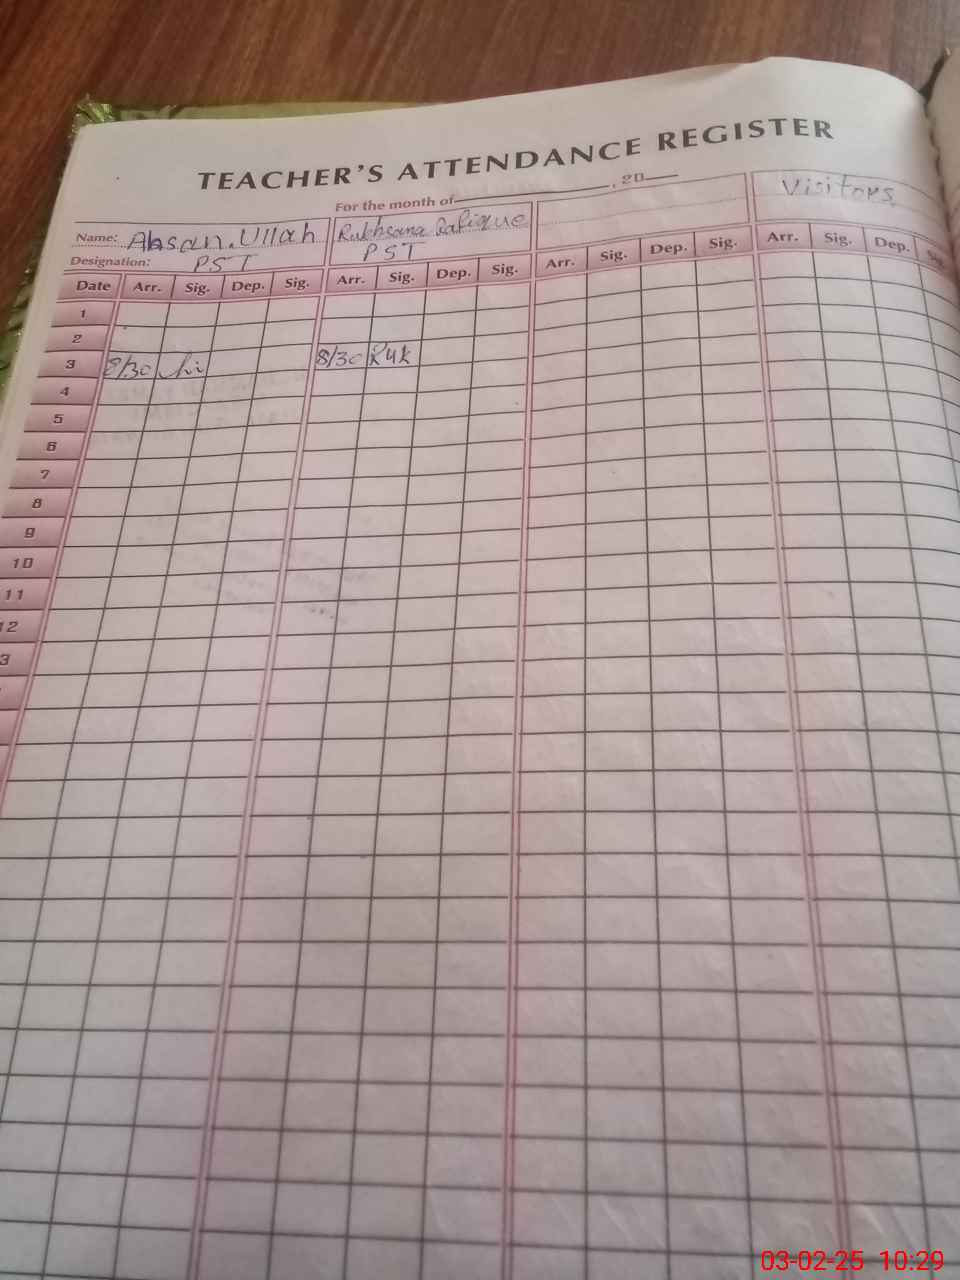 TEACHER'S ATTENDANCE REGISTER
For the month of , 20
Name: Ahsan.Ullah Rukhsana Rafique Visitors
Designation: PST PST
Date Arr. Sig. Dep. Sig. Arr. Sig. Dep. Sig. Arr. Sig. Dep. Sig. Arr. Sig. Dep. Sig.
1
2
3 8/30 8/30 Ruk
4
5
6
7
8
9
10
11
12
3
03-02-25 10:29